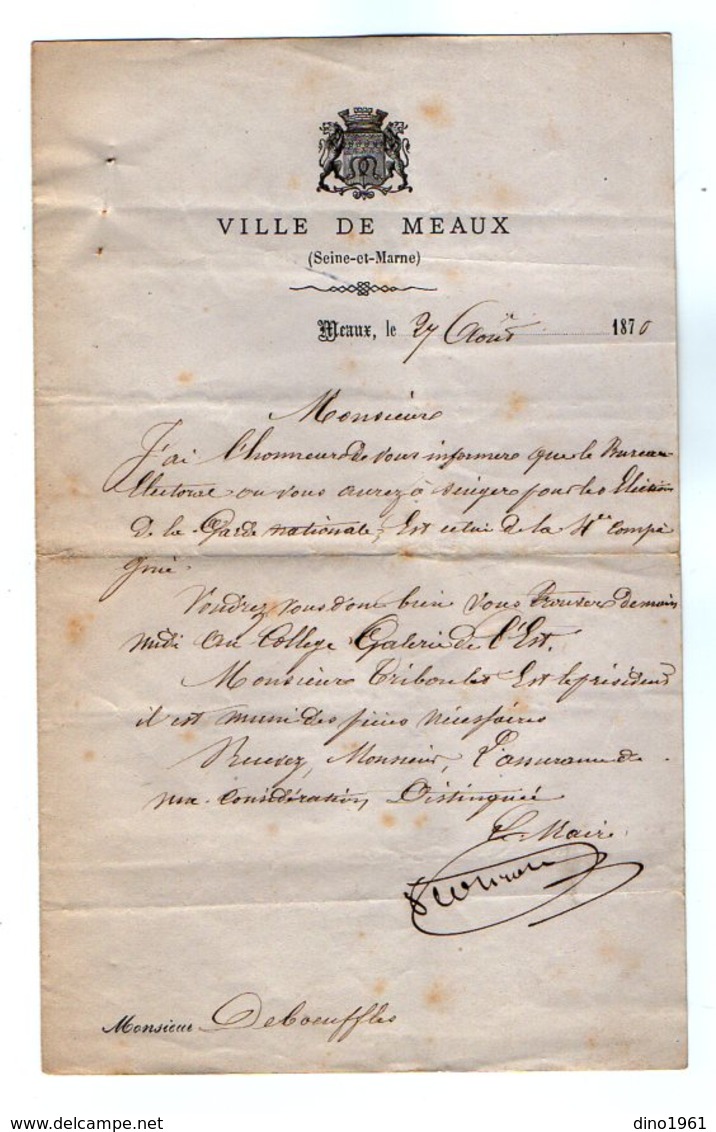 VILLE DE MEAUX
(Seine-et-Marne)
Meaux, le 27 Août 1870
Monsieur
J'ai l'honneur de vous informer que le Bureau
Electoral ou vous aurez à sièger pour les Election
de la Garde nationale, Est celui de la 4e compa
gnie.
Voudrez vous donc bien vous trouver demain
midi au College Galerie de l'Est.
Monsieur Triboulet Est le président
il est muni des pièces nécessaires
Recevez, Monsieur, l'assurance de
ma considération Distinguée
Le Maire
Monsieur Deboeuffles
dino1961